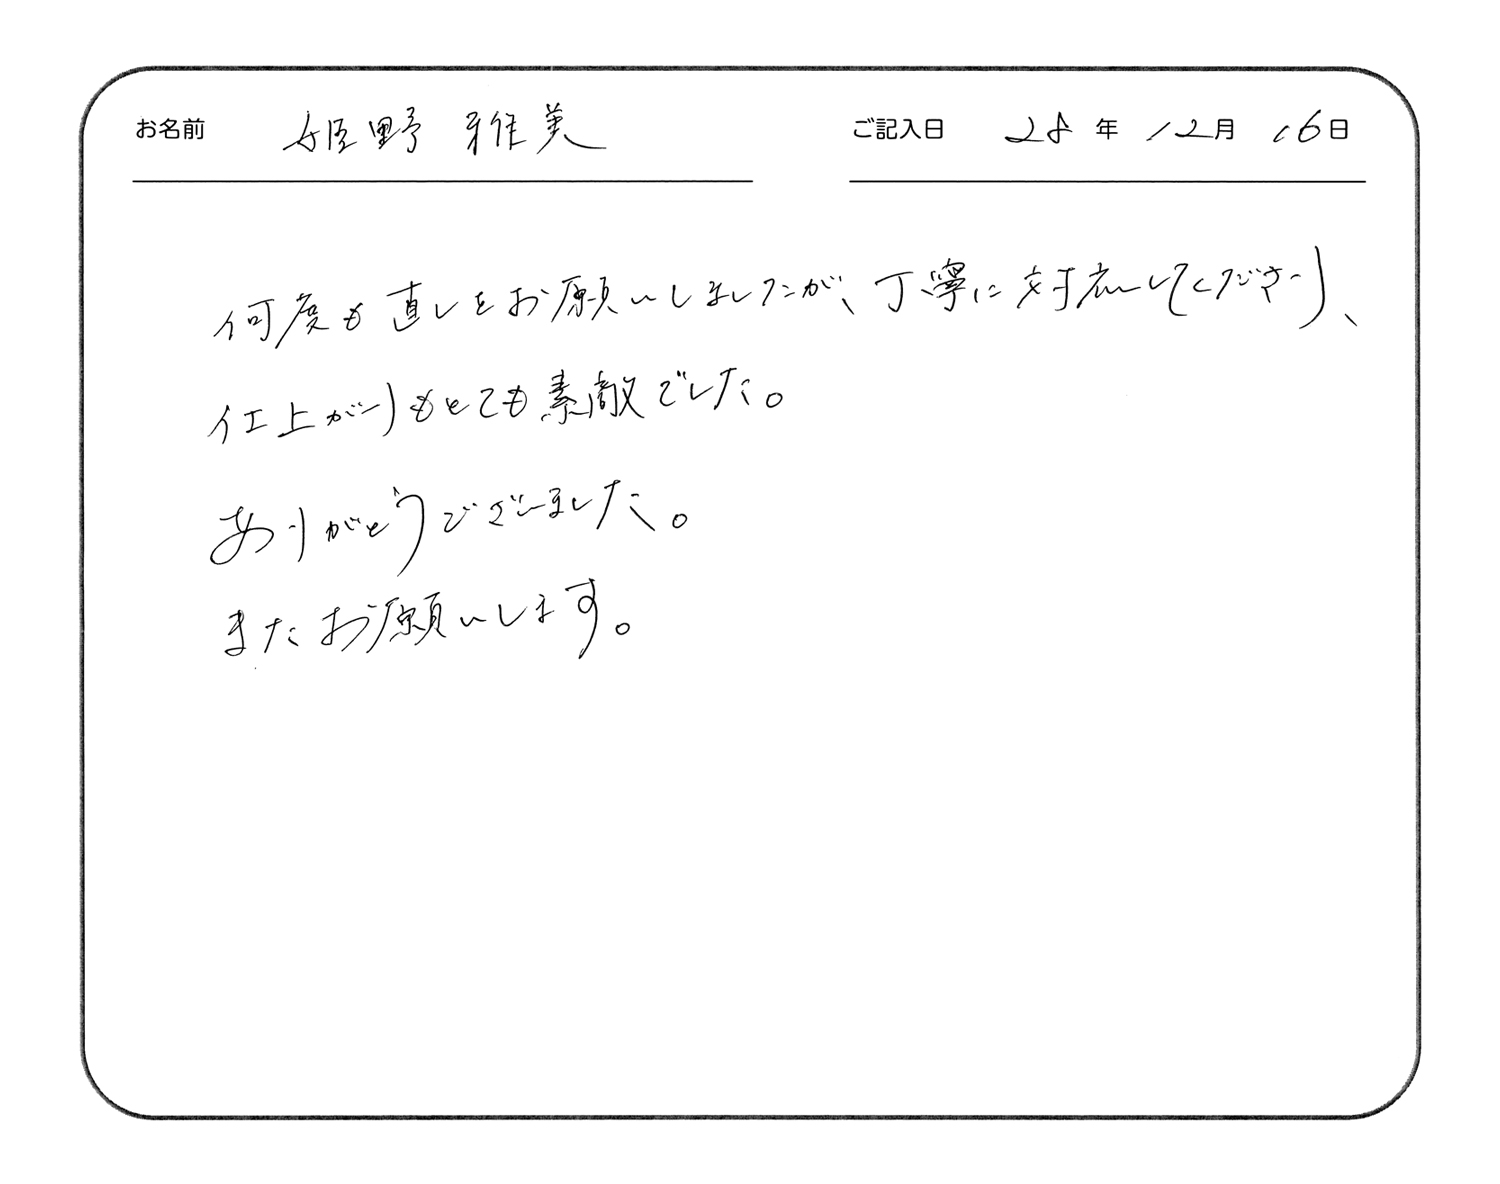 お名前 姫野 雅美 ご記入日 28年 12月 16日
何度も直しをお願いしましたが、丁寧に対応してくださり、
仕上がりもとても素敵でした。
ありがとうございました。
またお願いします。